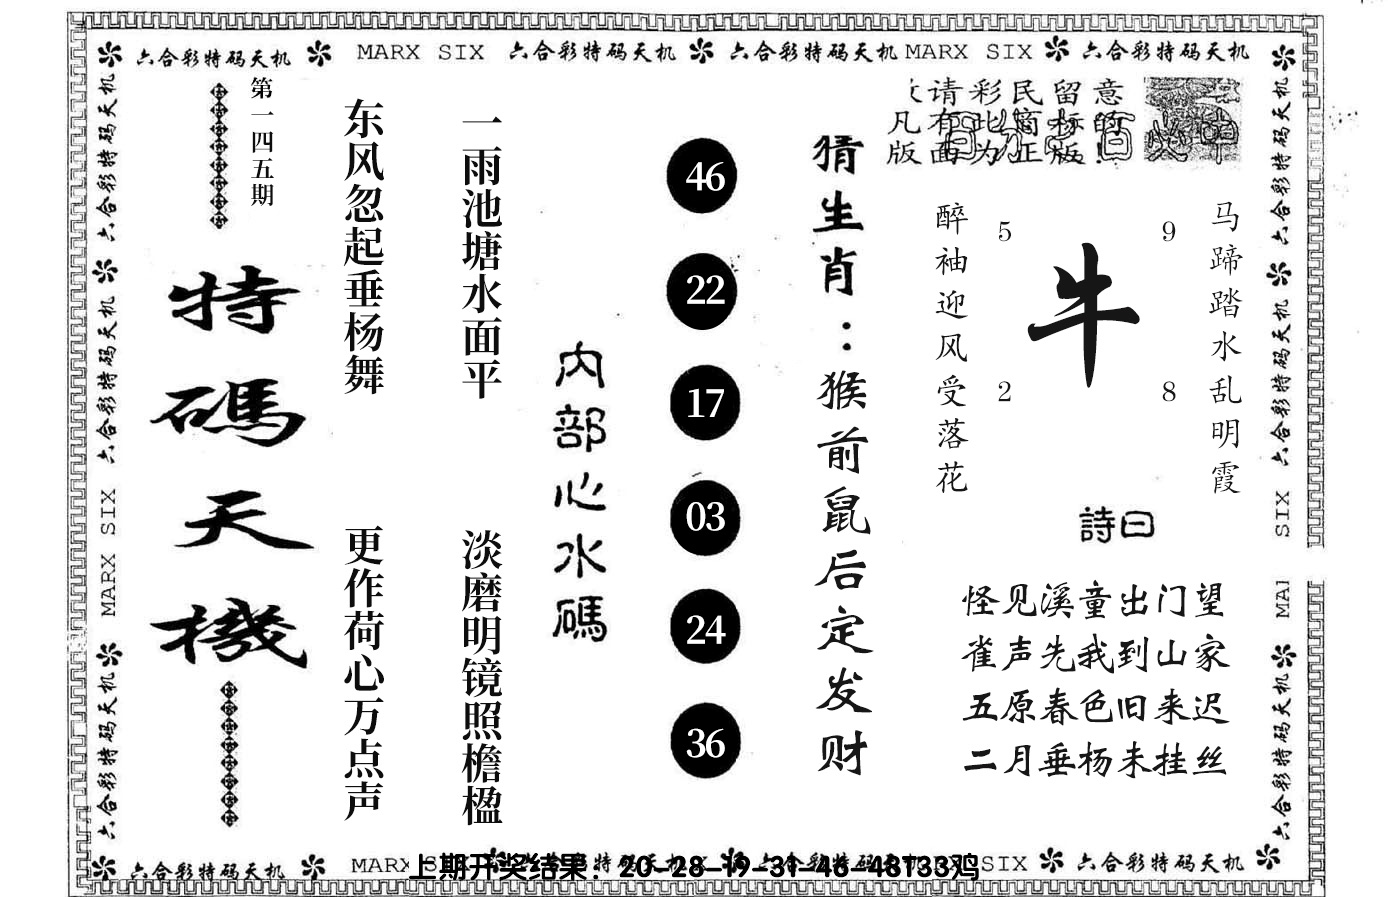 六合彩特码天机 MARX SIX 六合彩特码天机 六合彩特码天机 MARX SIX 六合彩特码天机
请彩民留意
凡有此商标的
版面为正版!
第一四五期
特碼天機
东风忽起垂杨舞 更作荷心万点声
一雨池塘水面平 淡磨明镜照檐楹
内部心水碼
46
22
17
03
24
36
猜生肖：猴前鼠后定发财
醉袖迎风受落花
5 9
牛
2 8
马蹄踏水乱明霞
詩曰
怪见溪童出门望
雀声先我到山家
五原春色旧来迟
二月垂杨未挂丝
六合彩特码天机
六合彩特码天机
MARX SIX
六合彩特码天机
六合彩特码天机
六合彩特码天机
SIX
MAI
六合彩特码天机
六合彩特码天机 MARX SIX 六合彩特码天机
上期开奖结果：20-28-19-31-46-48T33鸡